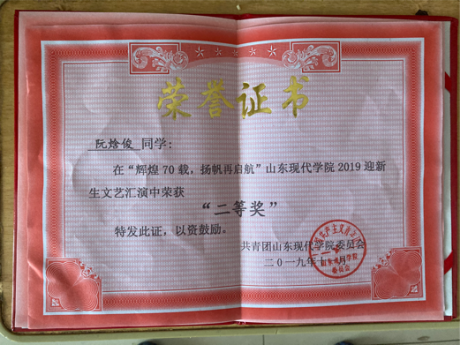 荣誉证书
阮焓俊 同学:
在“辉煌70载,扬帆再启航”山东现代学院2019迎新
生文艺汇演中荣获
“二等奖”
特发此证,以资鼓励。
共青团山东现代学院委员会
二〇一九年十 月